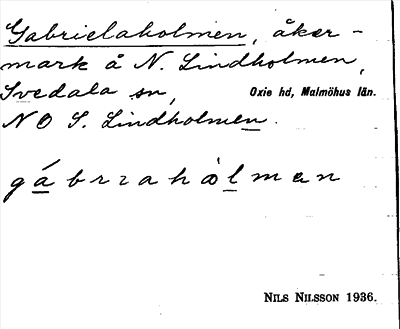 Gabrielaholmen, åker-
mark å N. Lindholmen,
Svedala sn, Oxie hd, Malmöhus län.
N O S. Lindholmen.
gábrɩahòlmen
NILS NILSSON 1936.